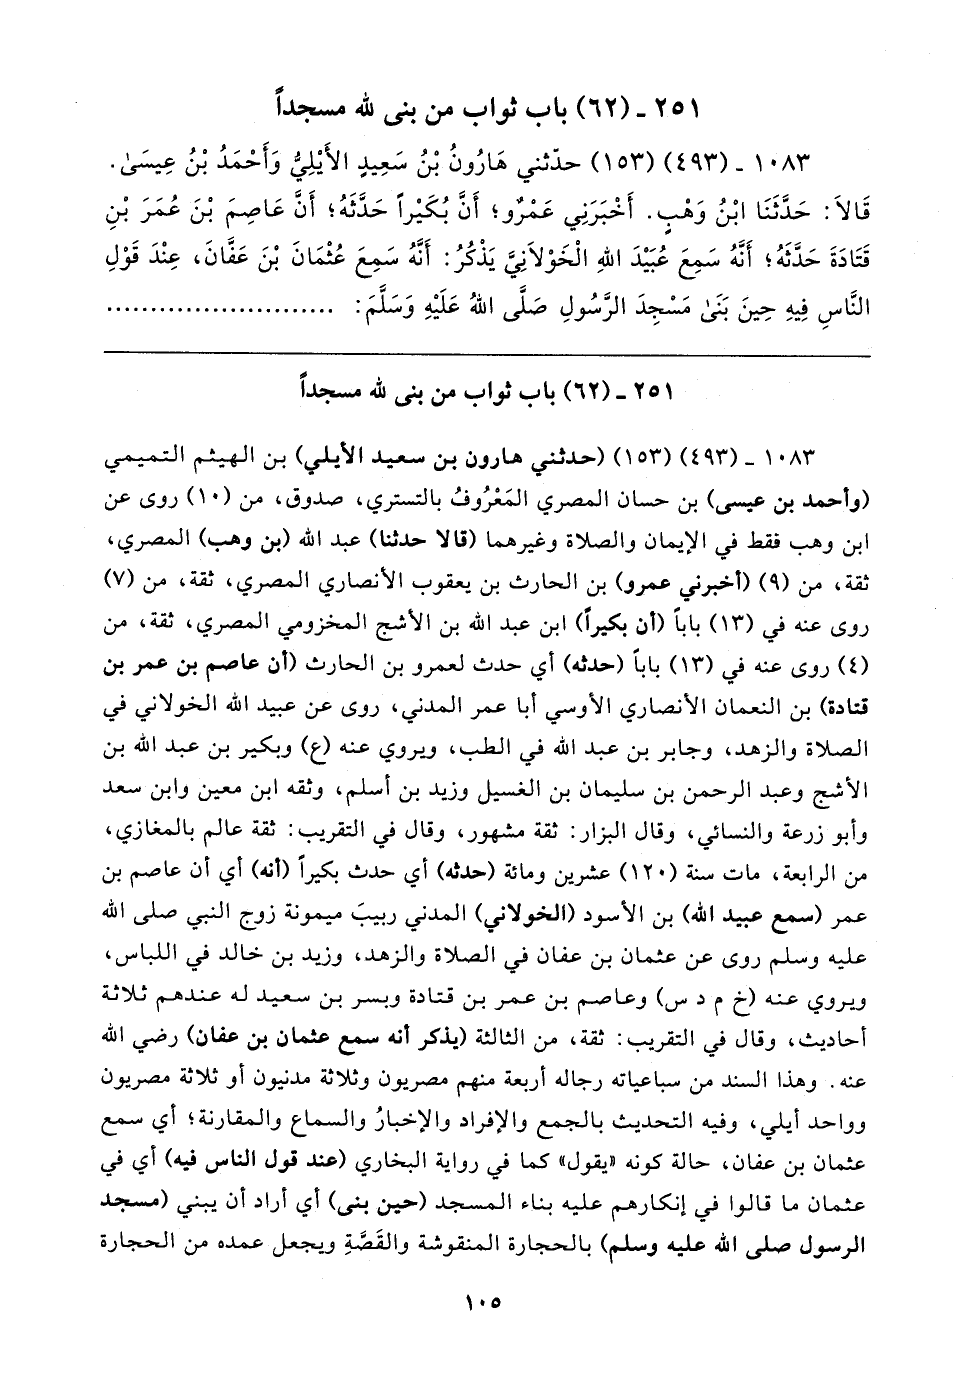 ٢٥١ - (٦٢) باب ثواب من بنى لله مسجداً
١٠٨٣ - (٤٩٣) (١٥٣) حدّثني هَارُونُ بْنُ سَعِيدٍ الأَيْلِيُّ وَأَحْمَدُ بْنُ عِيسَىٰ.
قَالاَ: حَدَّثَنَا ابْنُ وَهْبٍ. أَخْبَرَنِي عَمْرٌو؛ أَنَّ بُكَيْراً حَدَّثَهُ؛ أَنَّ عَاصِمَ بْنَ عُمَرَ بْنِ
قَتَادَةَ حَدَّثَهُ؛ أَنَّهُ سَمِعَ عُبَيْدَ اللهِ الْخَوْلاَنِيَّ يَذْكُرُ: أَنَّهُ سَمِعَ عُثْمَانَ بْنَ عَفَّانَ، عِنْدَ قَوْلِ
النَّاسِ فِيهِ حِينَ بَنَىٰ مَسْجِدَ الرَّسُولِ صَلَّى اللهُ عَلَيْهِ وَسَلَّمَ: .........................
٢٥١ - (٦٢) باب ثواب من بنى لله مسجداً
١٠٨٣ - (٤٩٣) (١٥٣) (حدثني هارون بن سعيد الأيلي) بن الهيثم التميمي
(وأحمد بن عيسى) بن حسان المصري المَعْرُوفُ بالتستري، صدوق، من (١٠) روى عن
ابن وهب فقط في الإيمان والصلاة وغيرهما (قالا حدثنا) عبد الله (بن وهب) المصري،
ثقة، من (٩) (أخبرني عمرو) بن الحارث بن يعقوب الأنصاري المصري، ثقة، من (٧)
روى عنه في (١٣) باباً (أن بكيراً) ابن عبد الله بن الأشج المخزومي المصري، ثقة، من
(٤) روى عنه في (١٣) باباً (حدثه) أي حدث لعمرو بن الحارث (أن عاصم بن عمر بن
قتادة) بن النعمان الأنصاري الأوسي أبا عمر المدني، روى عن عبيد الله الخولاني في
الصلاة والزهد، وجابر بن عبد الله في الطب، ويروي عنه (ع) وبكير بن عبد الله بن
الأشج وعبد الرحمن بن سليمان بن الغسيل وزيد بن أسلم، وثقه ابن معين وابن سعد
وأبو زرعة والنسائي، وقال البزار: ثقة مشهور، وقال في التقريب: ثقة عالم بالمغازي،
من الرابعة، مات سنة (١٢٠) عشرين ومائة (حدثه) أي حدث بكيراً (أنه) أي أن عاصم بن
عمر (سمع عبيد الله) بن الأسود (الخولاني) المدني ربيبَ ميمونة زوج النبي صلى الله
عليه وسلم روى عن عثمان بن عفان في الصلاة والزهد، وزيد بن خالد في اللباس،
ويروي عنه (خ م د س) وعاصم بن عمر بن قتادة وبسر بن سعيد له عندهم ثلاثة
أحاديث، وقال في التقريب: ثقة، من الثالثة (يذكر أنه سمع عثمان بن عفان) رضي الله
عنه. وهذا السند من سباعياته رجاله أربعة منهم مصريون وثلاثة مدنيون أو ثلاثة مصريون
وواحد أيلي، وفيه التحديث بالجمع والإفراد والإخبارُ والسماع والمقارنة؛ أي سمع
عثمان بن عفان، حالة كونه «يقول» كما في رواية البخاري (عند قول الناس فيه) أي في
عثمان ما قالوا في إنكارهم عليه بناء المسجد (حين بنى) أي أراد أن يبني (مسجد
الرسول صلى الله عليه وسلم) بالحجارة المنقوشة والقَصَّةِ ويجعل عمده من الحجارة
١٠٥